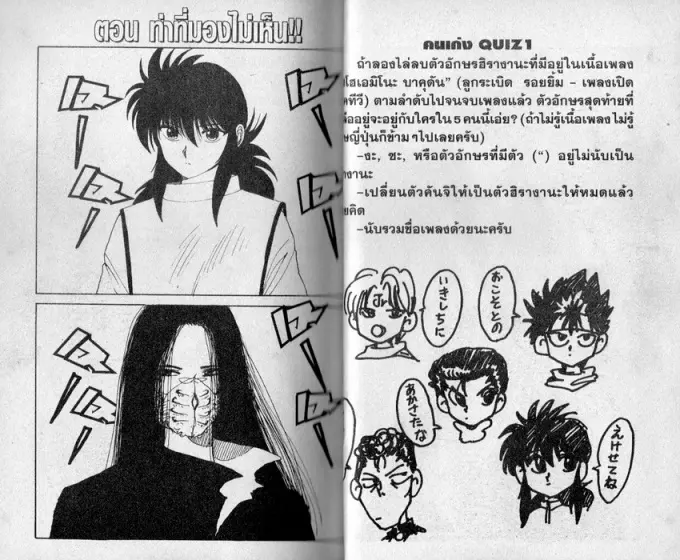 ตอน ท่าที่มองไม่เห็น!!
คนเก่ง QUIZ1
ถ้าลองไล่ลบตัวอักษรฮิรางานะที่มีอยู่ในเนื้อเพลง
โฮเอมิโนะ บาคุดัน” (ลูกระเบิด รอยยิ้ม – เพลงเปิด
ทีวี) ตามลำดับไปจนจบเพลงแล้ว ตัวอักษรสุดท้ายที่
อยู่จะอยู่กับใครใน ๕ คนนี้เอ่ย? (ถ้าไม่รู้เนื้อเพลง ไม่รู้
ญี่ปุ่นก็ข้าม ๆ ไปเลยครับ)
–งะ, ซะ, หรือตัวอักษรที่มีตัว (“) อยู่ไม่นับเป็น
งานะ
–เปลี่ยนตัวคันจิให้เป็นตัวฮิรางานะให้หมดแล้ว
คิด
–นับรวมชื่อเพลงด้วยนะครับ
おこそとの
いきしちに
Jr
あかさたな
えけせてね